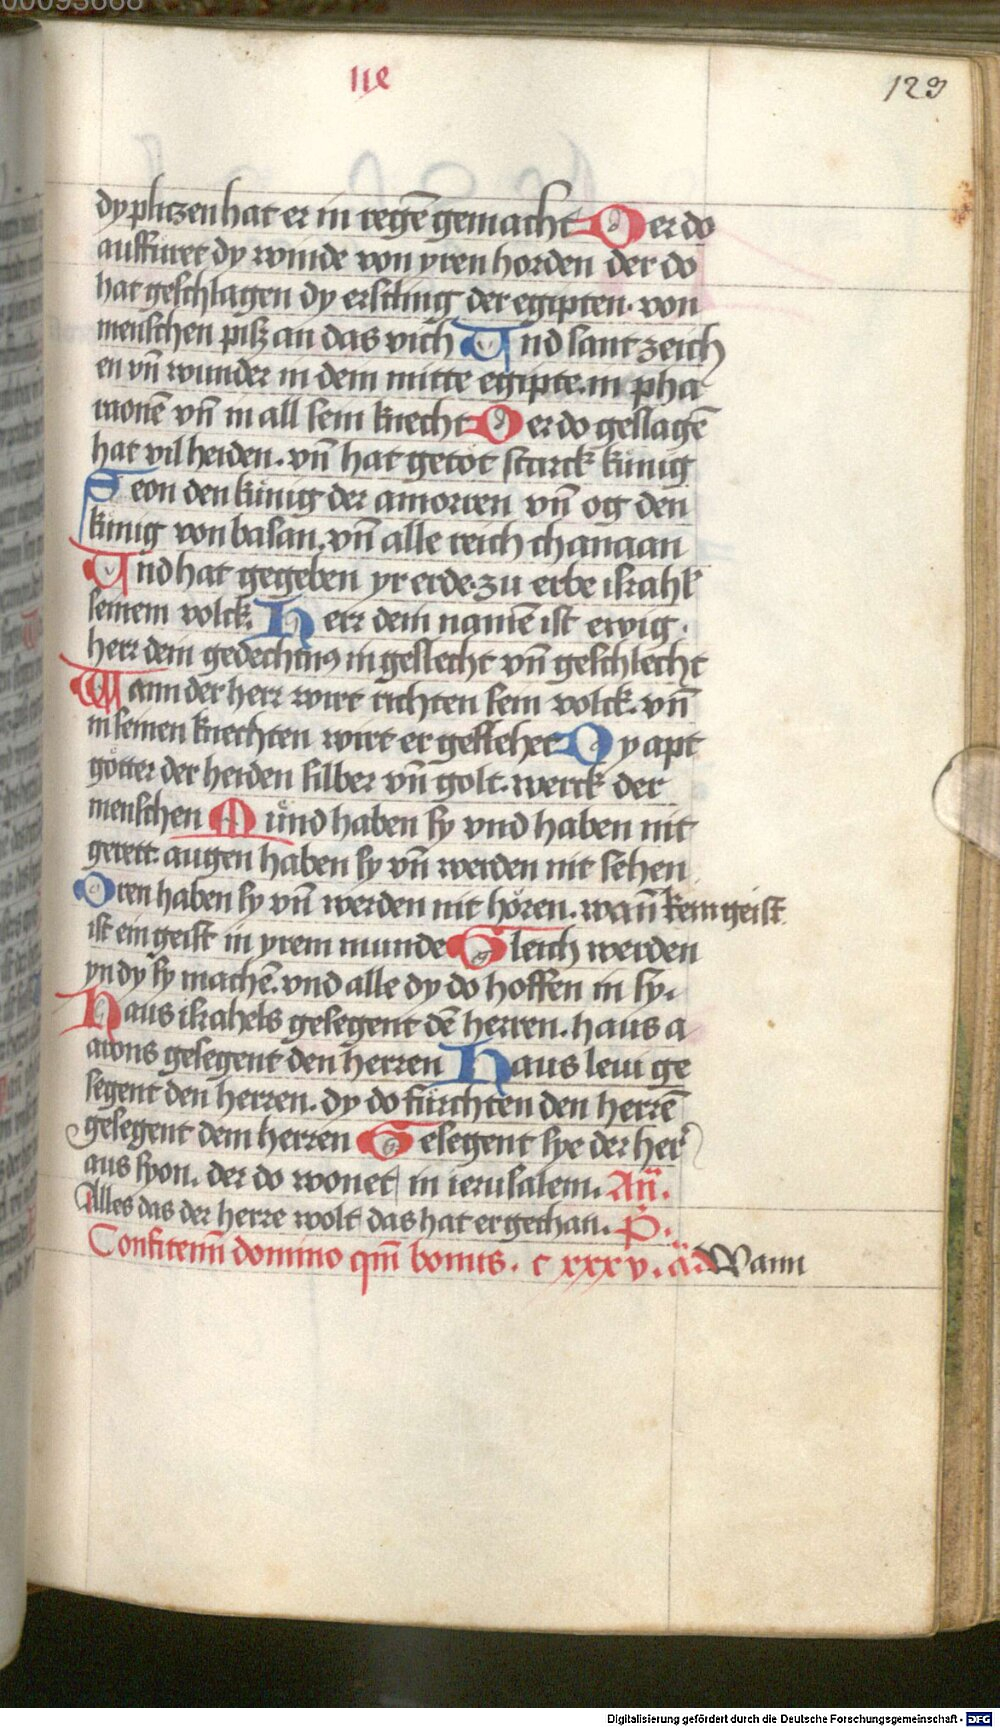 00093668
IIe
129
dy plitzen hat er in regē gemacht Der do
auffüret dy winde von yren horden der do
hat geschlagen dy ersting der egipten. von
menschen pisz an das vich Vnd sant zeich
en vn̄ wunder in dem mitte egipte. in pha
raonē vn̄ in all sein knecht Der do geslagē
hat vil heiden. vn̄ hat getöt starck künig
Seon den künig der amorren vn̄ og den
künig von basan. vn̄ alle reich chanaan
Vnd hat gegeben yr erde. zu erbe israhl
seinem volck. Herr dein namē ist ewig.
herr dein gedechtnus in geslecht vn̄ geschlecht
Wann der herr wirt richten sein volck. vn̄
in seinen knechten wirt er geflehet Dy apt
götter der heiden silber vn̄ golt. werck der
menschen Münd haben sy vnd haben nit
gerett. augen haben sy vn̄ werden nit sehen
Oren haben sy vn̄ werden nit hören. wan̄ kein geist
ist ein geist in yrem munde Gleich werden
yn dy sy machē. vnd alle dy do hoffen in sy.
Haus israhels gesegent dē herren. haus a
arons gesegent den herren Haus leui ge
segent den herren. dy do fürchten den herrē
gesegent dem herren Gesegent sye der her
aus syon. der do wonet in ierusalem. An̄.
Alles das der herre wolt das hat er gethan. P.
Confitemī domino qm̄ bonus. c xxxv. ād Wann
Digitalisierung gefördert durch die Deutsche Forschungsgemeinschaft - DFG